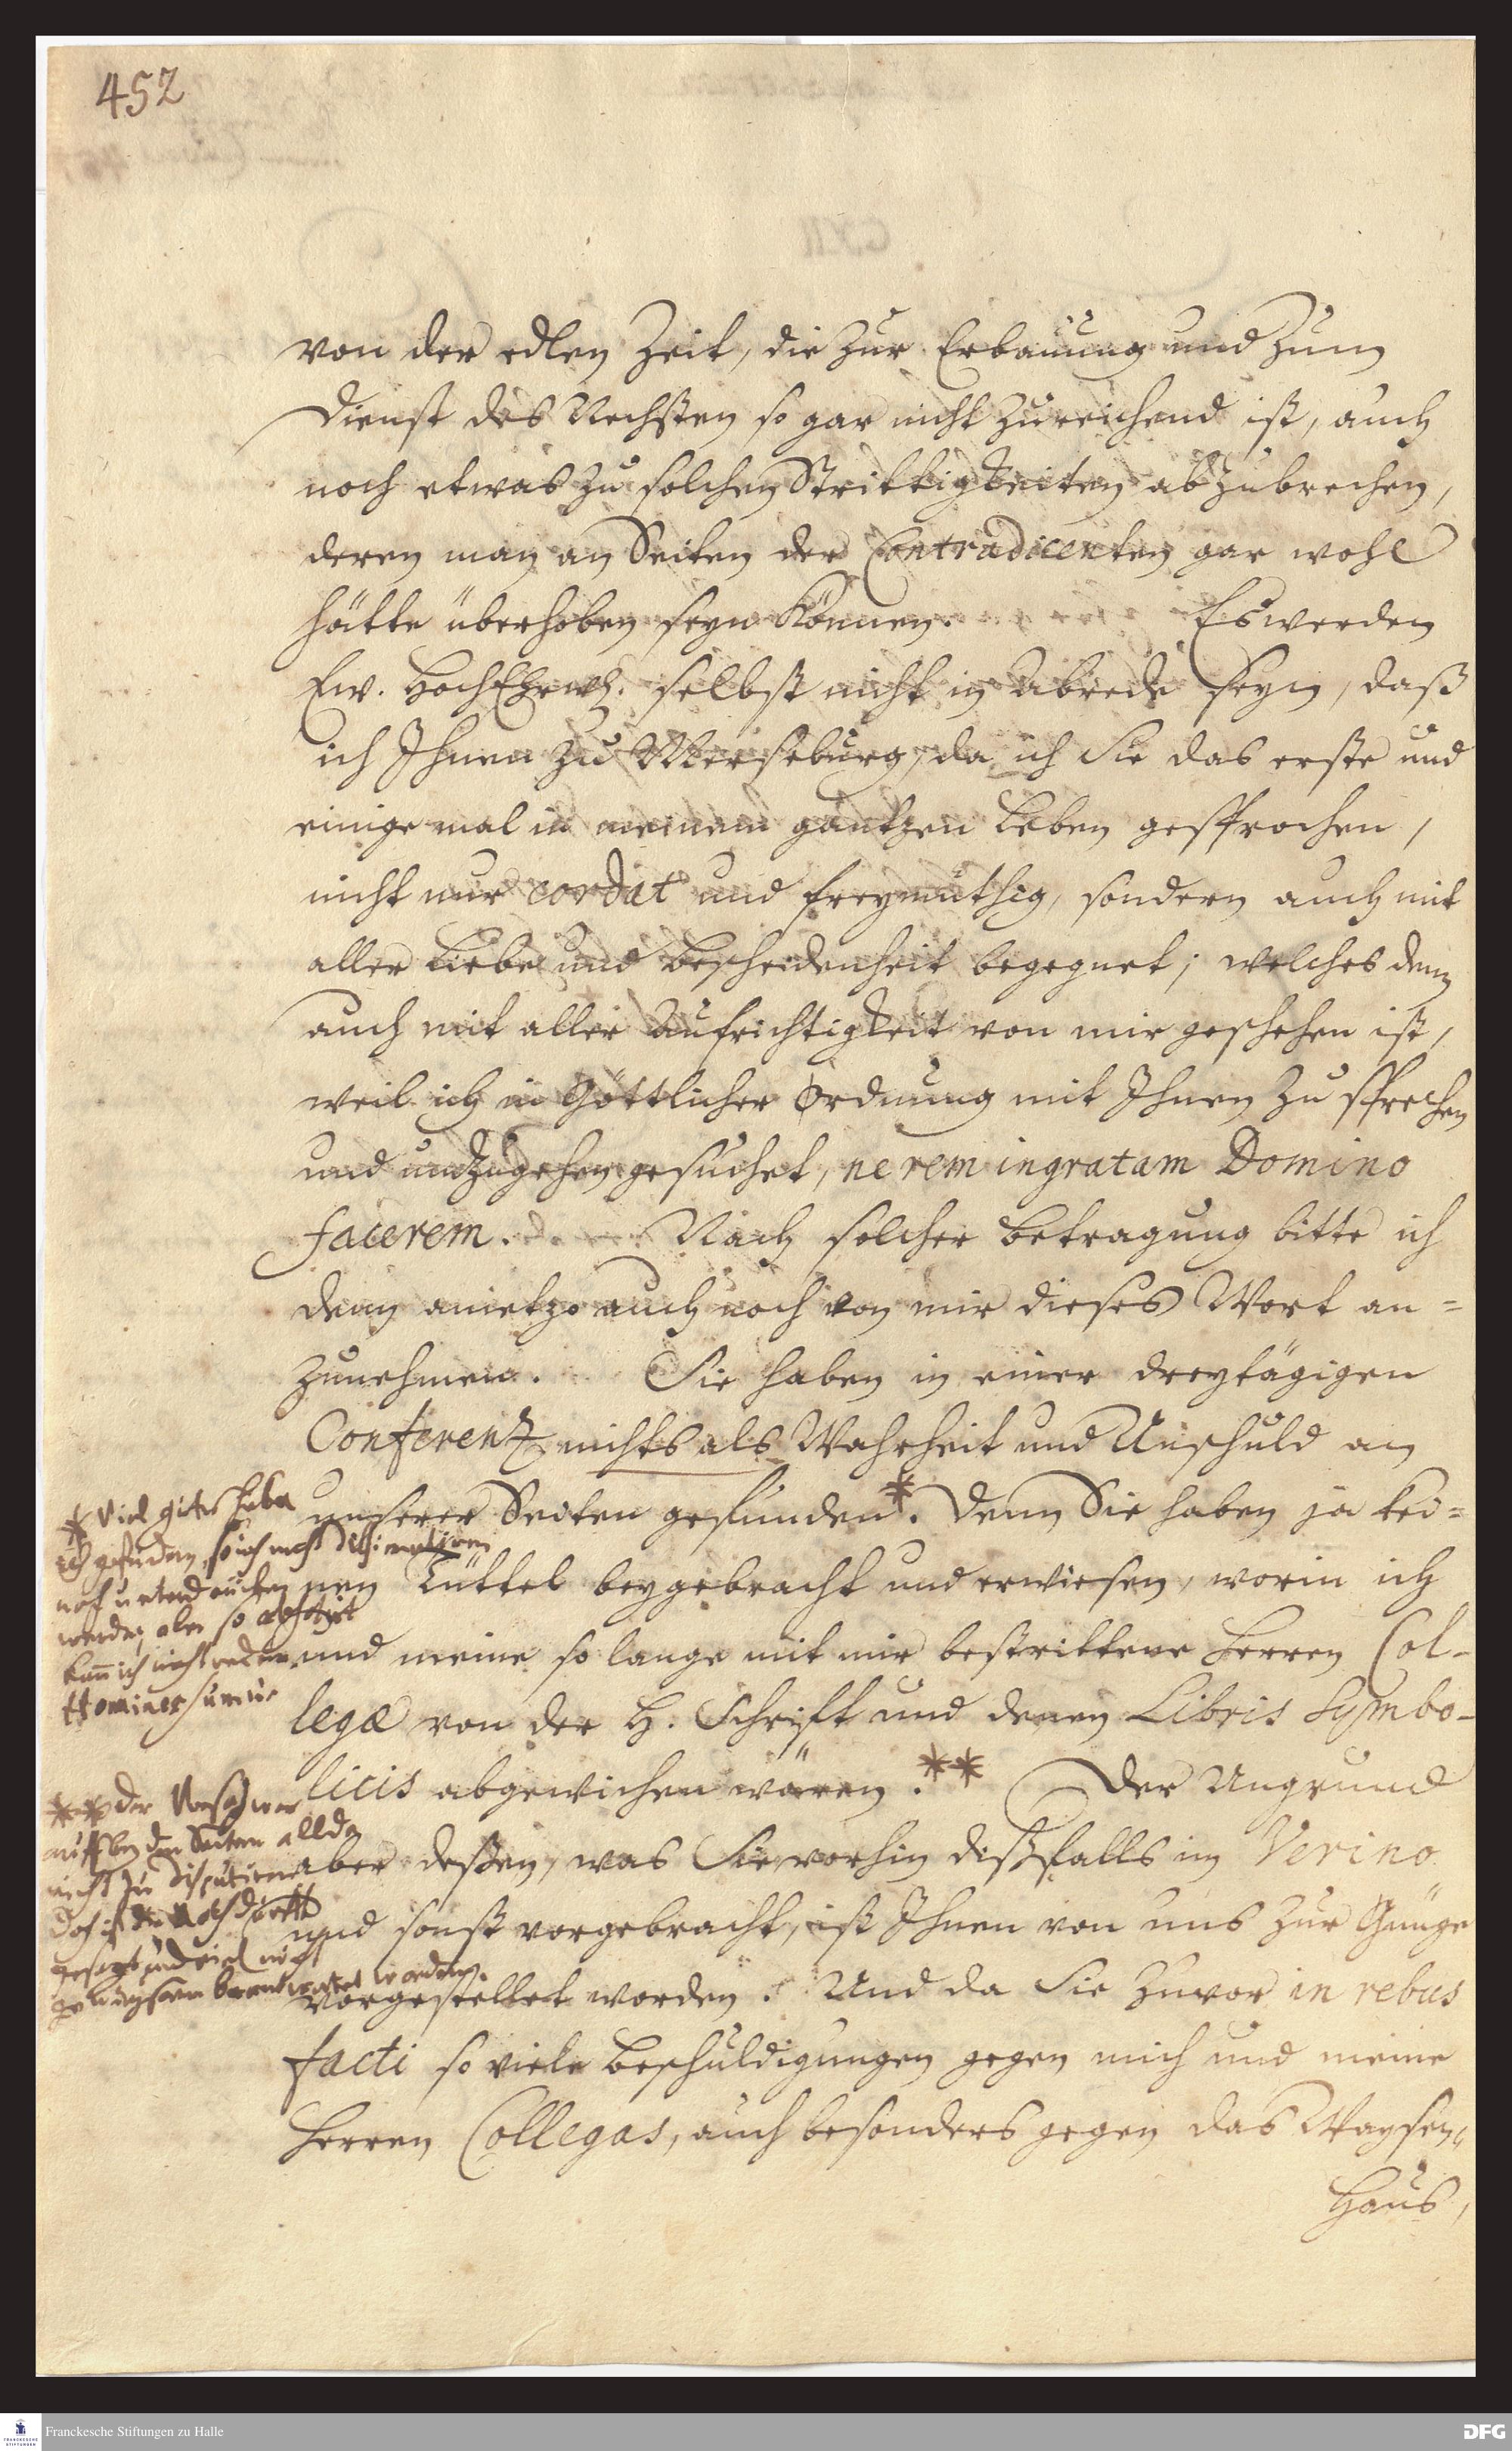 452
von der edlen Zeit, die zur Erbauung und zum
Dienst des Nechsten so gar nicht zureichend ist, auch
noch etwas zu solchen Strittigkeiten abzubrechen,
deren man an Seiten der Contradicenten gar wohl
hätte überhoben seyn können. Es werden
Ew. HochEhrw. selbst nicht in Abrede seyn, daß
ich Ihnen zu Merseburg, da ich Sie das erste und
einige mal in meinem gantzen Leben gesprochen,
nicht nur cordat und freymüthig, sondern auch mit
aller Liebe und Bescheidenheit begegnet; welches denn
auch mit aller Aufrichtigkeit von mir geschehen ist,
weil ich in Göttlicher Ordnung mit Ihnen zu sprechen
und umzugehen gesuchet, ne rem ingratam Domino
facerem. Nach solcher Betragung bitte ich
denn anietzo auch noch von mir dieses Wort an=
zunehmen. Sie haben in einer dreytägigen
Conferentz nichts als Wahrheit und Unschuld an
unserer Seiten gefunden*. Denn Sie haben ja kei=
nen Tüttel beygebracht und erwiesen, worin ich
und meine so lange mit mir bestrittene Herren Col-
legæ von der H. Schrifft und denen Libris Symbo-
licis abgewichen wären.** Der Ungrund
aber deßen, was Sie vorhin dißfalls im Verino
und sonst vorgebracht, ist Ihnen von uns zur Gnüge
vorgestellet worden. Und da Sie zuvor in rebus
facti so viele Beschuldigungen gegen mich und meine
Herren Collegas, auch besonders gegen das Waysen-
Haus,
* Viel gutes habe
ich gefunden, so ich nicht dissimuliren
noch unterdrücken
werde, aber so
kan ich nicht reden.
Homines sumus
** der Vorsatz war
auff beyden Seiten allda
nicht zu disputiren
doch ist die Nothdurfft
gesagt und viel nicht
beantwortet worden.
Franckesche Stiftungen zu Halle
FRANCKESCHE
STIFTUNGEN
DFG